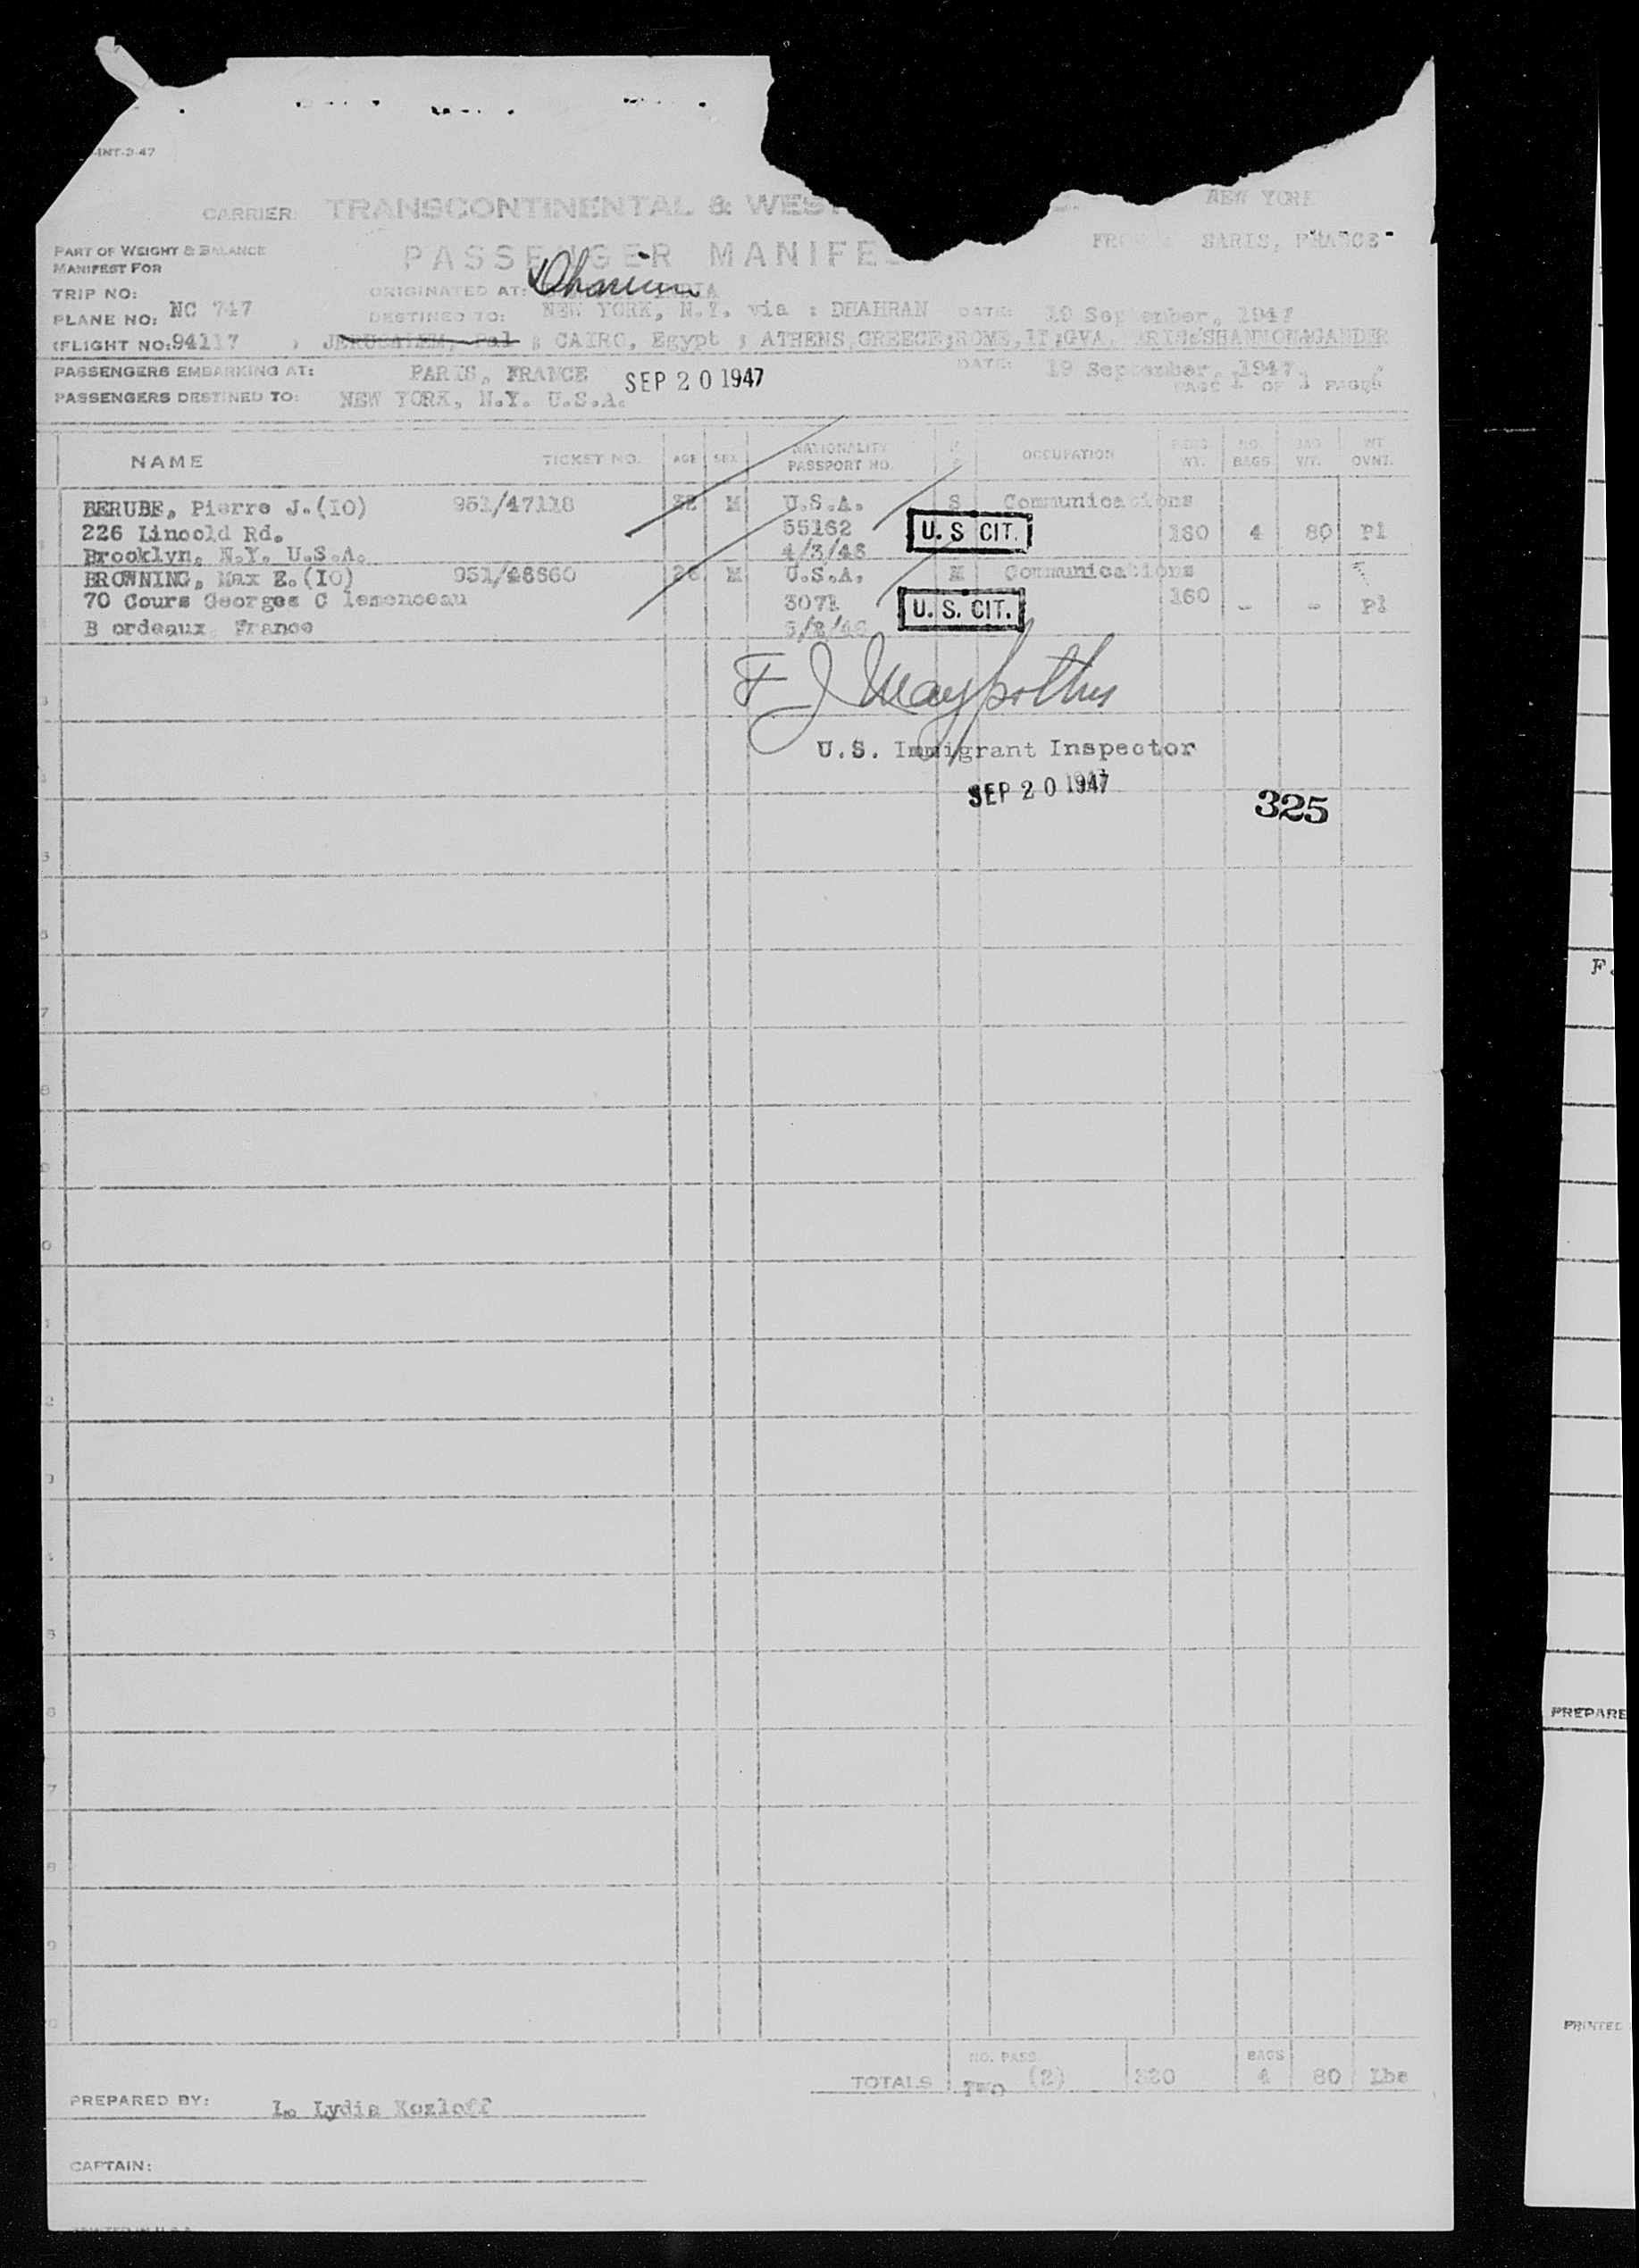 -INT-2-47
CARRIER: TRANSCONTINENTAL & WES
NEW YORK
PASSENGER MANIFE
PART OF WEIGHT & BALANCE
MANIFEST FOR
FROM : SARIS, FRANCE
TRIP NO: NC 747
ORIGINATED AT: Dharan
PLANE NO:
DESTINED TO: NEW YORK, N.Y. via : DHAHRAN DATE: 19 September, 1947
(FLIGHT NO: 94117 , JERUSALEM, Pal ; CAIRO, Egypt ; ATHENS, GREECE; ROME, IT; GVA, SHANNON & GANDER
PASSENGERS EMBARKING AT: PARIS, FRANCE SEP 20 1947 DATE: 19 September, 1947.
PAGE 1 OF 1 PAGES
PASSENGERS DESTINED TO: NEW YORK, N.Y. U.S.A.
NAME TICKET NO. AGE SEX NATIONALITY PASSPORT NO. OCCUPATION NO. BAGS WT. OVNT.
BERUBE, Pierre J.(IO) 951/47118 M U.S.A. S Communications
226 Lincold Rd. 55162 U. S CIT. 160 4 80 Pl
Brooklyn, N.Y. U.S.A. 4/3/46
BROWNING, Max E.(IO) 951/48660 26 M U.S.A. M Communications
70 Cours Georges C lemenceau 3071 U. S. CIT. 160 - - Pl
B ordeaux France
F J
U.S. Immigrant Inspector
SEP 20 1947
325
TOTALS NO. PASS TWO (2) 320 BAGS 4 80 Lbs
PREPARED BY: L. Lydia Kozloff
CAPTAIN:
PRINTED IN U.S.A.
F.
PREPARE
PRINTED